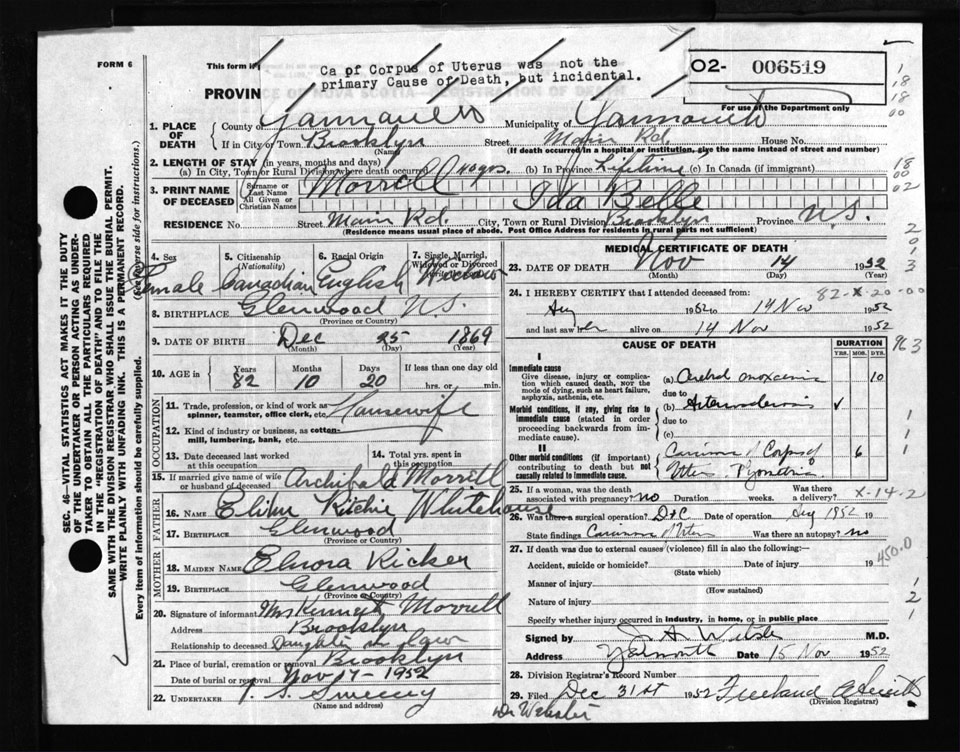 FORM 6
This form if
Ca of Corpus of Uterus was not the
primary Cause of Death, but incidental.
O2- 006519
PROVIN
For use of the Department only
1. PLACE OF DEATH
County of Yarmouth Municipality of Yarmouth
If in City or Town Brooklyn Street Main Rd. House No.
(Name) (If death occurred in a hospital or institution, give the name instead of street and number)
2. LENGTH OF STAY (in years, months and days)
(a) In City, Town or Rural Division where death occurred 40 yrs. (b) In Province Lifetime (c) In Canada (if immigrant)
3. PRINT NAME OF DECEASED
Surname or Last Name Morrell
All Given or Christian Names Ida Belle
RESIDENCE No. Street Main Rd. City, Town or Rural Division Brooklyn Province N.S.
(Residence means usual place of abode. Post Office Address for residents in rural parts not sufficient)
SEC. 46-VITAL STATISTICS ACT MAKES IT THE DUTY
OF THE UNDERTAKER OR PERSON ACTING AS UNDER-
TAKER TO OBTAIN ALL THE PARTICULARS REQUIRED
IN THE "REGISTRATION OF DEATH" AND TO FILE THE
SAME WITH THE DIVISION REGISTRAR WHO SHALL ISSUE THE BURIAL PERMIT.
WRITE PLAINLY WITH UNFADING INK. THIS IS A PERMANENT RECORD.
Every item of information should be carefully supplied. (See reverse for instructions.)
4. Sex 5. Citizenship (Nationality) 6. Racial Origin 7. Single, Married, Widowed or Divorced
Female Canadian English Widow
8. BIRTHPLACE Glenwood N.S.
(Province or Country)
9. DATE OF BIRTH Dec 25 1869
(Month) (Day) (Year)
10. AGE in Years 82 Months 10 Days 20 If less than one day
hrs. or min.
OCCUPATION
11. Trade, profession, or kind of work as spinner, teamster, office clerk, etc. Housewife
12. Kind of industry or business, as cotton-mill, lumbering, bank, etc.
13. Date deceased last worked at this occupation 14. Total yrs. spent in this occupation
15. If married give name of wife or husband of deceased Archibald Morrell
FATHER
16. NAME Elihu Ritchie Whitehouse
17. BIRTHPLACE Glenwood
(Province or Country)
MOTHER
18. MAIDEN NAME Elnora Ricker
19. BIRTHPLACE Glenwood
(Province or Country)
20. Signature of informant Mrs Kenneth Morrell
Address Brooklyn
Relationship to deceased Daughter in law
21. Place of burial, cremation or removal Brooklyn
Date of burial or removal Nov 17-1952
22. UNDERTAKER Sweeny
(Name and address)
MEDICAL CERTIFICATE OF DEATH
23. DATE OF DEATH Nov 14 1952
(Month) (Day) (Year)
24. I HEREBY CERTIFY that I attended deceased from:
Aug 1952 to 14 Nov 1952
and last saw her alive on 14 Nov 1952
CAUSE OF DEATH DURATION
YRS. MOS. DYS.
I
Immediate cause
Give disease, injury or complication which caused death, NOT the mode of dying, such as heart failure, asphyxia, asthenia, etc.
(a) 10
due to
Morbid conditions, if any, giving rise to immediate cause (stated in order proceeding backwards from immediate cause).
(b) Arteriosclerosis
due to
(c)
II
Other morbid conditions (if important) contributing to death but not causally related to immediate cause.
Carcinoma / Corpus of 6
Uteri Pyometria
25. If a woman, was the death associated with pregnancy? no Duration weeks. Was there a delivery?
26. Was there a surgical operation? D+C Date of operation Aug 1952 19
State findings Carcinoma Uteri Was there an autopsy? no
27. If death was due to external causes (violence) fill in also the following:-
Accident, suicide or homicide? Date of injury 19
(State which)
Manner of injury
(How sustained)
Nature of injury
Specify whether injury occurred in industry, in home, or in public place
Signed by M.D.
Address Yarmouth Date 15 Nov 1952
28. Division Registrar's Record Number
29. Filed Dec 31st 1952 Freeland
(Division Registrar)
Dr Webster